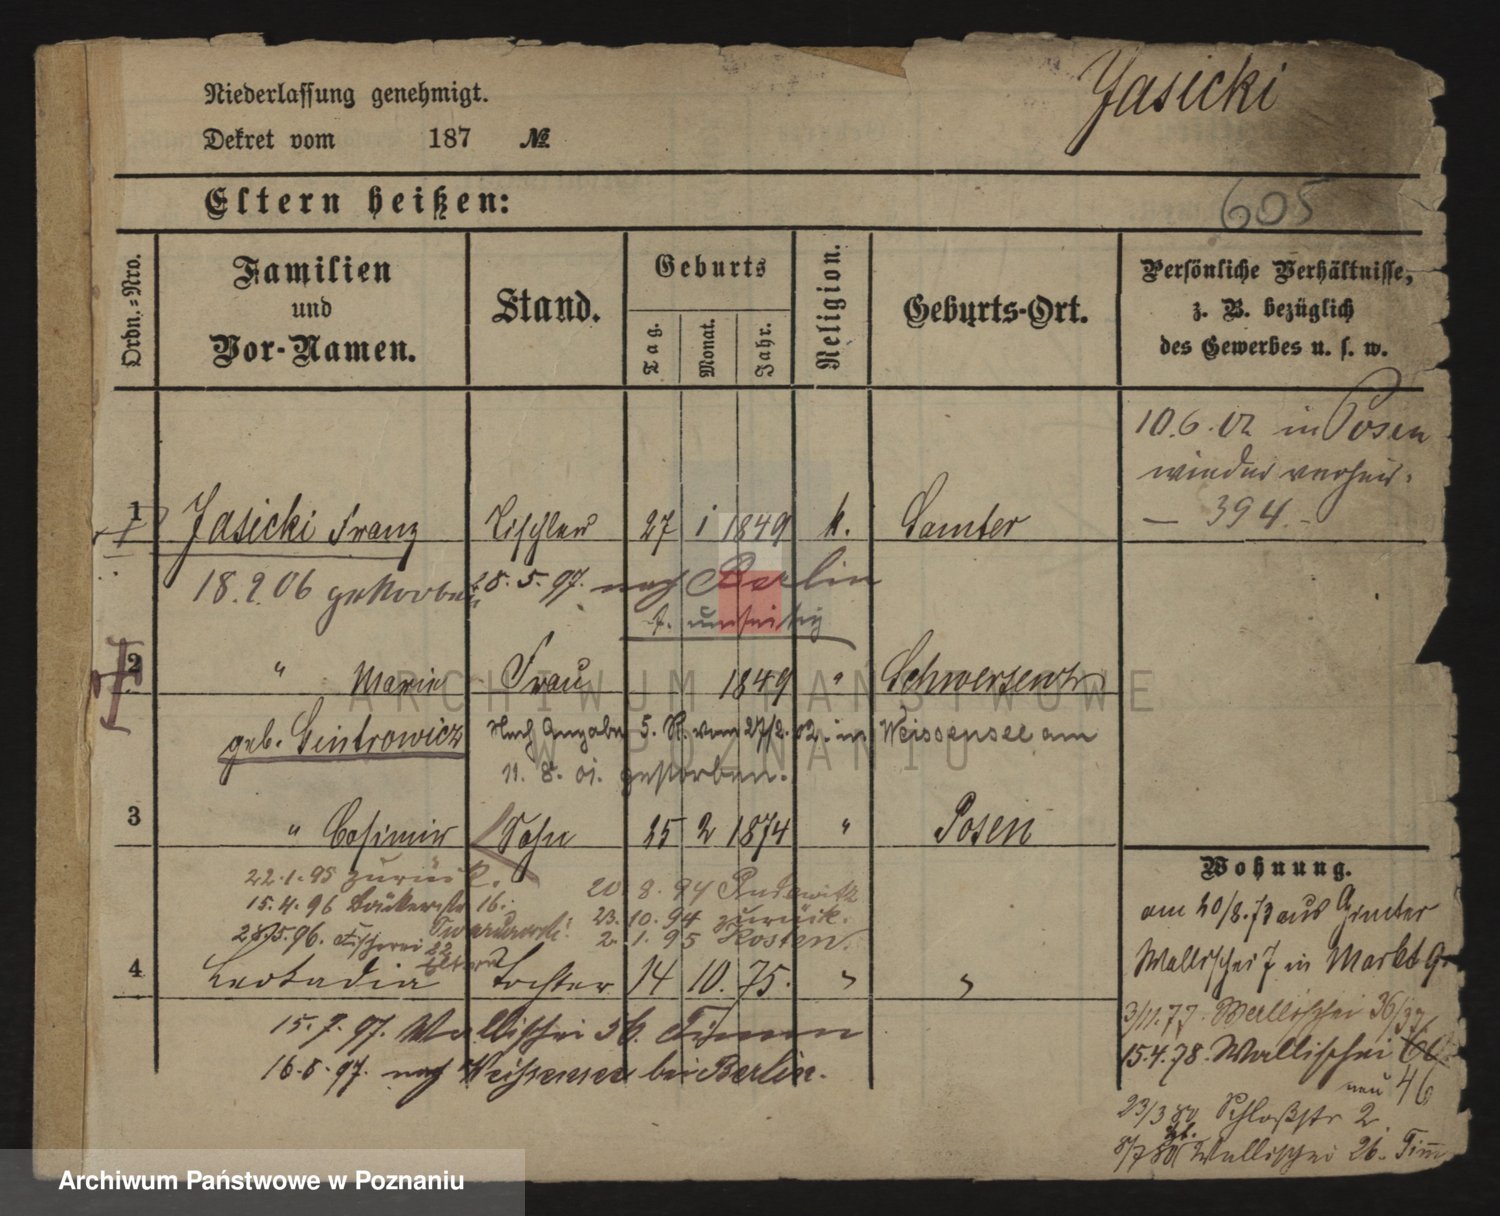 Niederlassung genehmigt.
Jasicki
Dekret vom 187 №
Eltern heißen:
605
Ordn.-Nro.
Familien und Vor-Namen.
Stand.
Geburts
Tag.
Monat.
Jahr.
Religion.
Geburts-Ort.
Persönliche Verhältnisse, z. B. bezüglich des Gewerbes u. s. w.
10.6.02 in Posen
wieder
— 394. –
1 Jasicki Franz Tischler 27 1 1849 k. Samter
18.2.06 gestorben 28.5.97. nach Berlin
s. umseitig
2 " Marie Frau 1849 " Schwersenz
geb. Gintrowicz Nach Angabe S. R. vom 27/2. 02. in Weissensee am
11. 8. 01. gestorben.
3 " Casimir Sohn 25 2 1874 " Posen
22.1.95 zurück.
20 8. 94
15.4.96 16.
23.10.94 zurück.
28.5.96. Fischerei 22
2. 1. 95 Kosten.
Eltern
4 Leokadia Tochter 14 10. 75. " "
15.7.97. Wallischei 36.
16.6.97. nach Weissensee bei Berlin.
Wohnung.
am 20/8.73 aus
Wallischei 7 in Markt
3/11.77. Wallischei 36/37
15.4.78. Wallischei
neu 46
23/3 80 Schloßstr 2.
8/7 80 Wallischei 26.
ARCHIWUM PAŃSTWOWE
W POZNANIU
Archiwum Państwowe w Poznaniu